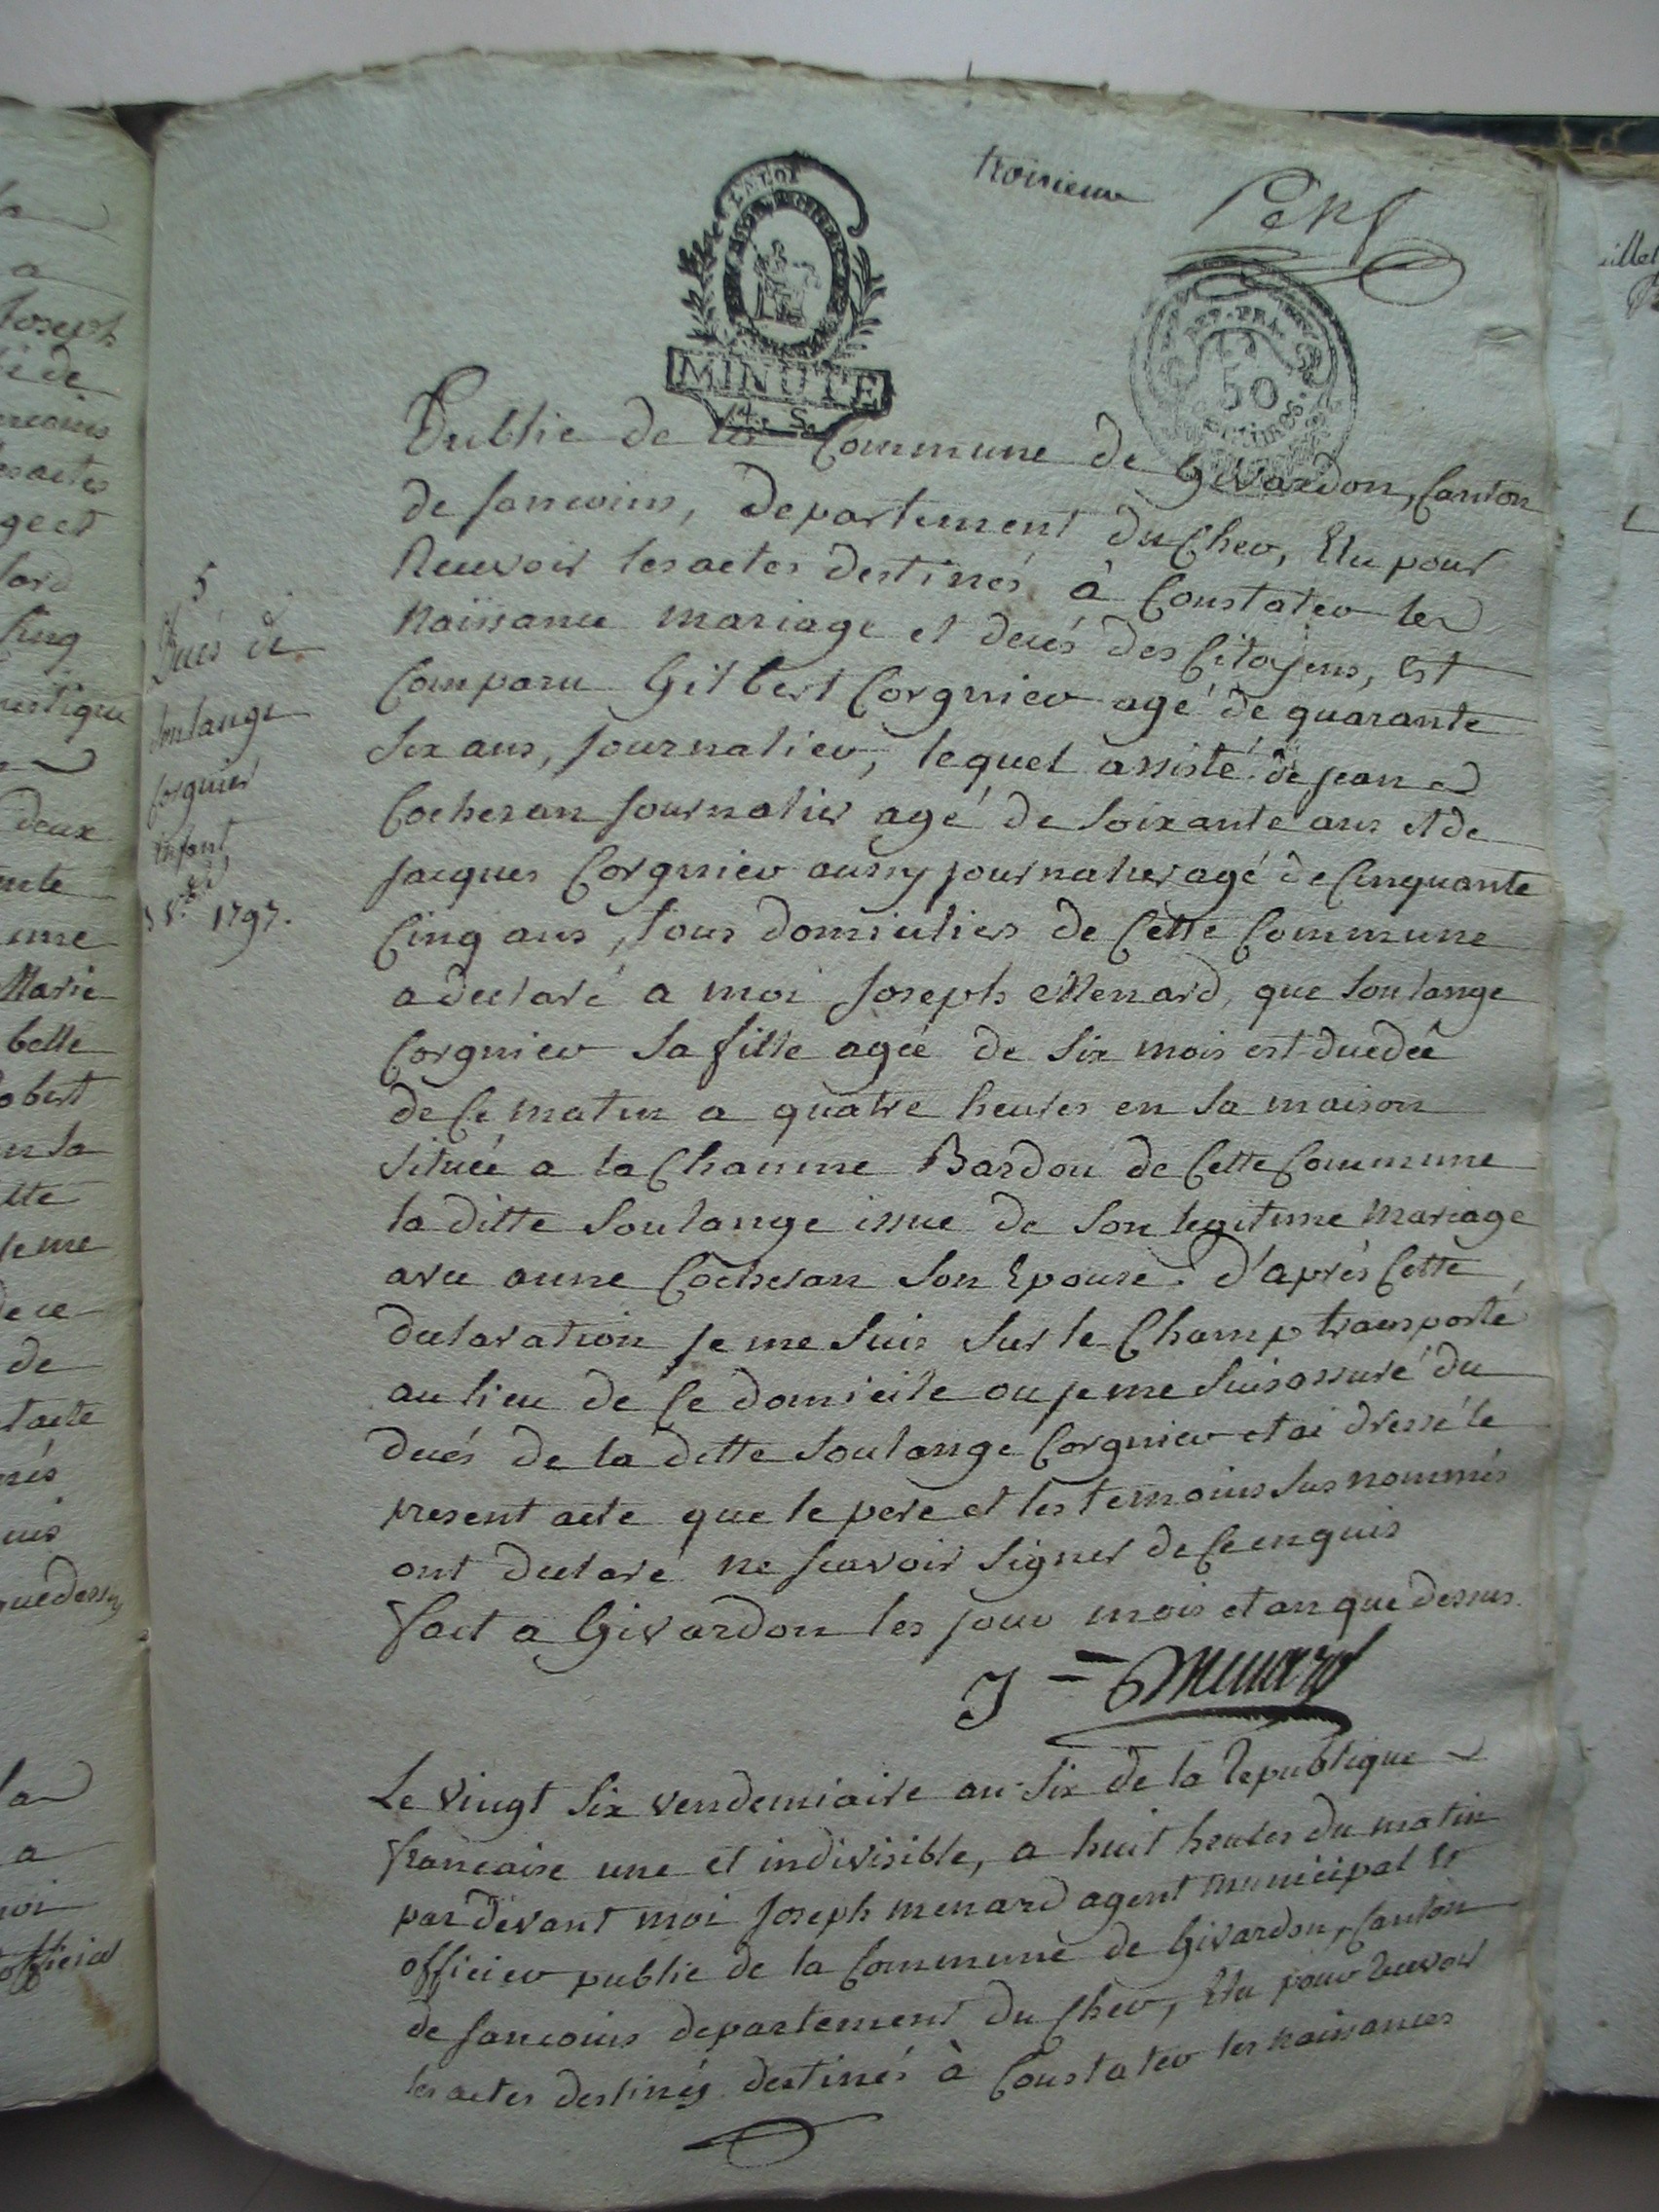 troisieme
LA LOI
MINUTE
REP. FRA.
50
CENTIMES.
Public de la Commune de Givardon, Canton
de Sancoins, departement du Cher, Elu pour
Recevoir les actes destinés à Constater les
Naissance mariage et decés des Citoyens, Est
Comparu Gilbert Corgnier agé de quarante
six ans, Journalier, lequel assisté de jean
Cocheran Journalier agé de soixante ans et de
jacques Corgnier aussy journalier agé de Cinquante
Cinq ans, tous domiciliés de Cette Commune
a declaré a moi Joseph Menard, que Soulange
Corgnier sa fille agée de six mois est decedée
de Ce matin a quatre heures en sa maison
située a la Chaume Bardou de Cette Commune
la ditte Soulange issue de son legitime mariage
avec anne Cocheran son Epouse. d'après Cette
declaration je me suis sur le Champ transporté
au lieu de Ce domicile ou je me suis assuré du
decés de la ditte Soulange Corgnier et ai dressé le
present acte que le pere et les temoins susnommés
ont declaré ne scavoir signer de Ce enquis
fait a Givardon les jour mois et an que dessus.
J = Menard
Le vingt six vendemiaire an six de la Republique
francaise une et indivisible, a huit heures du matin
par devant moi Joseph menard agent municipal et
officier public de la Commune de Givardon, Canton
de Sancoins departement du Cher, Elu pour recevoir
les actes destinés destinés à Constater les naissances
5
Decés de
Soulange
Corgnier
enfant
1797.